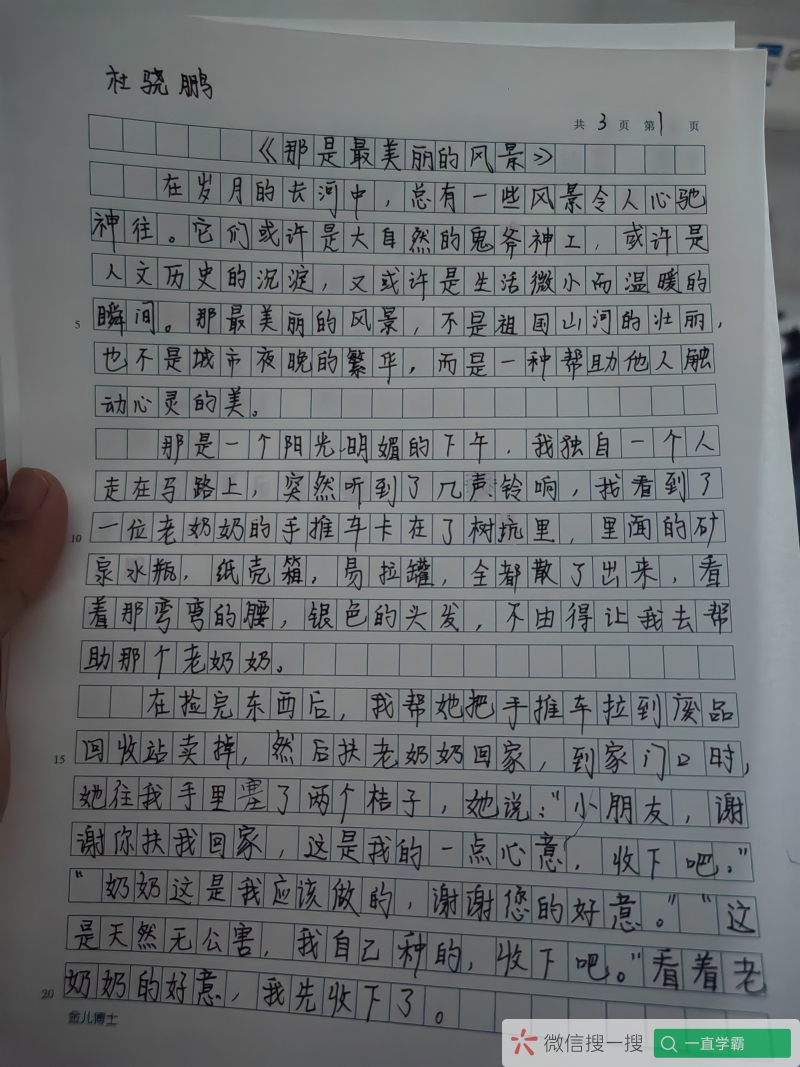 杜骁鹏
共 3 页 第 1 页
《那是最美丽的风景》
在岁月的长河中，总有一些风景令人心驰
神往。它们或许是大自然的鬼斧神工，或许是
人文历史的沉淀，又或许是生活微小而温暖的
5 瞬间。那最美丽的风景，不是祖国山河的壮丽，
也不是城市夜晚的繁华，而是一种帮助他人触
动心灵的美。
那是一个阳光明媚的下午，我独自一个人
走在马路上，突然听到了几声铃响，我看到了
10 一位老奶奶的手推车卡在了树坑里，里面的矿
泉水瓶，纸壳箱，易拉罐，全都散了出来，看
着那弯弯的腰，银色的头发，不由得让我去帮
助那个老奶奶。
在捡完东西后，我帮她把手推车拉到废品
15 回收站卖掉，然后扶老奶奶回家，到家门口时，
她往我手里塞了两个桔子，她说："小朋友，谢
谢你扶我回家，这是我的一点心意，收下吧。"
"奶奶这是我应该做的，谢谢您的好意。""这
是天然无公害，我自己种的，收下吧。"看着老
20 奶奶的好意，我先收下了。
金儿博士
微信搜一搜
一直学霸